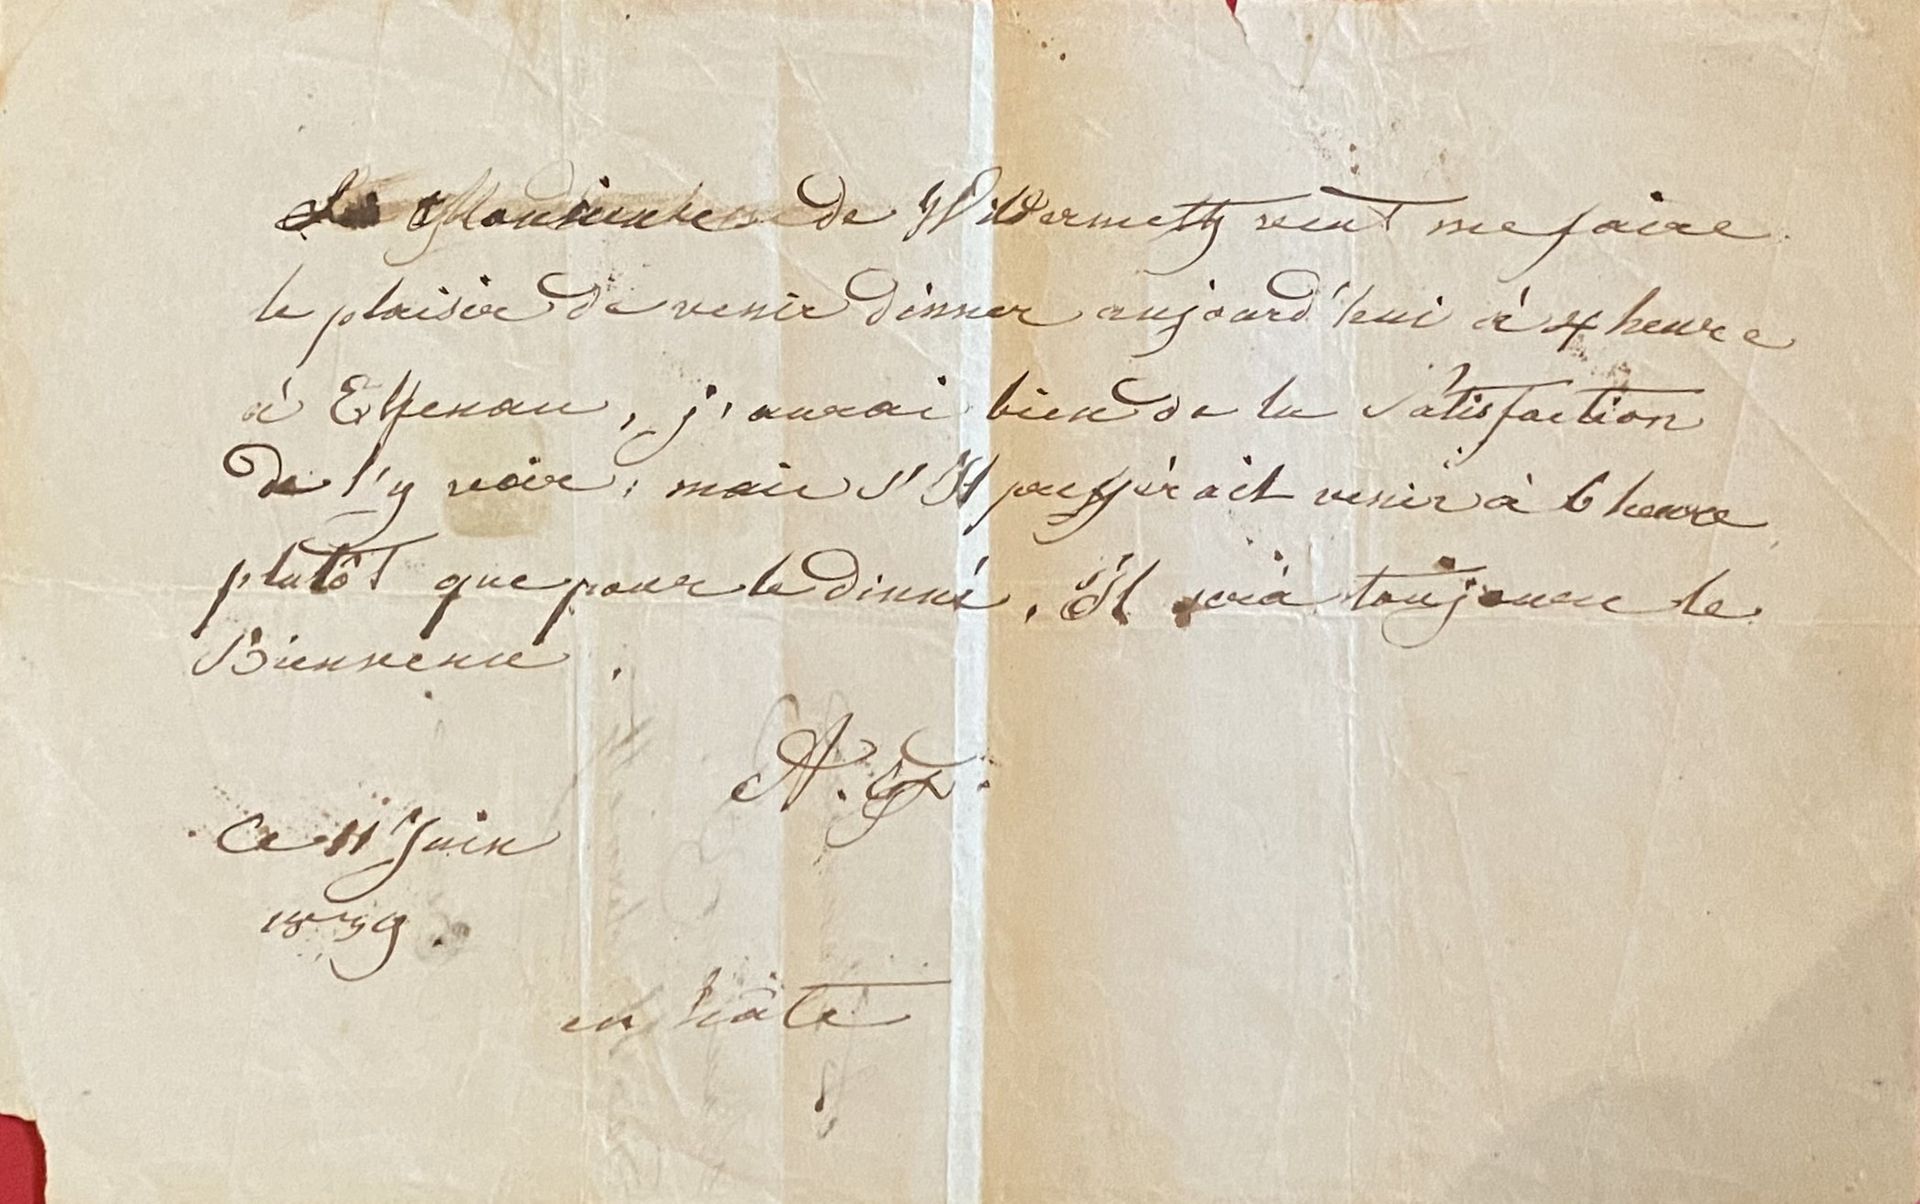 Monsieur de Wildermett veut me faire
le plaisir de venir dinner aujourd'hui à 4 heure
à Elfenau, j'aurai bien de la Satisfaction
de l'y voir; mais s'Il preférait venir à 6 heure
plutôt que pour le dinné, Il sera toujours le
Bienvenu.
A. F.
Ce 11 Juin
1839.
en hâte